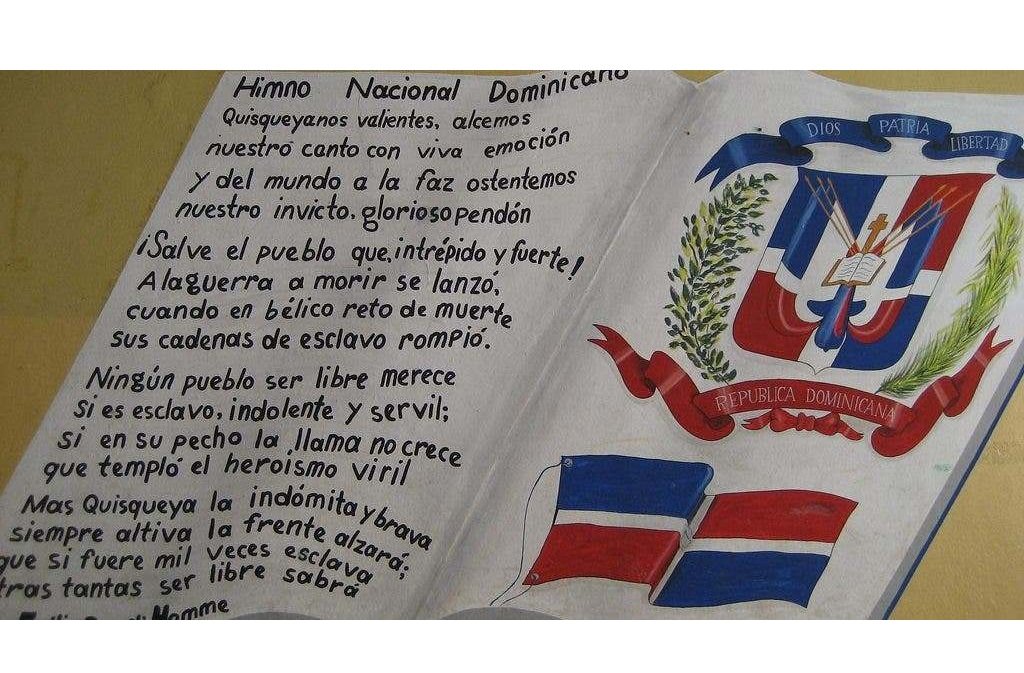 Himno Nacional Dominicano
Quisqueyanos valientes, alcemos
nuestro canto con viva emoción
y del mundo a la faz ostentemos
nuestro invicto. glorioso pendón
¡Salve el pueblo que, intrépido y fuerte!
A la guerra a morir se lanzó,
cuando en bélico reto de muerte
sus cadenas de esclavo rompió.
Ningún pueblo ser libre merece
si es esclavo, indolente y servil;
si en su pecho la llama no crece
que templó el heroísmo viril
Mas Quisqueya la indómita y brava
siempre altiva la frente alzará;
que si fuere mil veces esclava
tras tantas ser libre sabrá
DIOS PATRIA LIBERTAD
REPUBLICA DOMINICANA